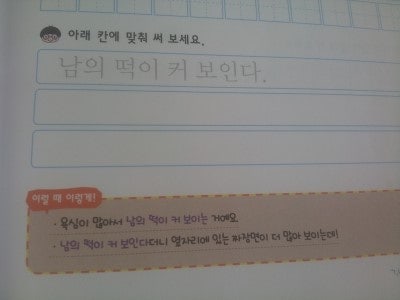 아래 칸에 맞춰 써 보세요.
남의 떡이 커 보인다.
이럴 때 이렇게!
· 욕심이 많아서 남의 떡이 커 보이는 거예요
· 남의 떡이 커 보인다더니 옆자리에 있는 짜장면이 더 많아 보이는데!